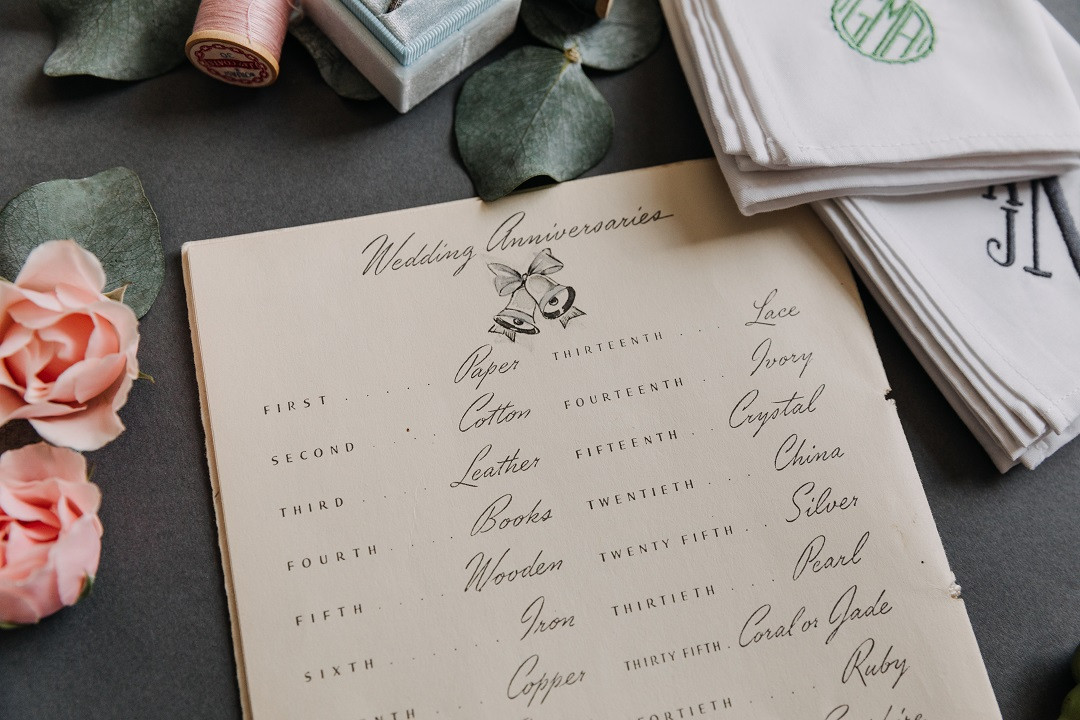 GMA
Wedding Anniversaries
FIRST . . . . Paper THIRTEENTH . . . Lace
SECOND . . . . Cotton FOURTEENTH . . Ivory
THIRD . . . . Leather FIFTEENTH . . Crystal
FOURTH . . . . Books TWENTIETH . . . China
FIFTH . . . . Wooden TWENTY FIFTH . . Silver
SIXTH . . . . . Iron THIRTIETH . . . . Pearl
Copper THIRTY FIFTH . Coral or Jade
FORTIETH . . . . Ruby